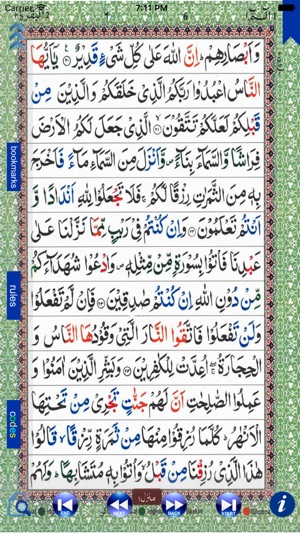 Carrier
7:11 PM
وَاَبْصَارِهِمْ ؕ اِنَّ اللّٰهَ عَلٰى كُلِّ شَىْءٍ قَدِيْرٌ ۟ يٰۤاَيُّهَا
النَّاسُ اعْبُدُوْا رَبَّكُمُ الَّذِىْ خَلَقَكُمْ وَالَّذِيْنَ مِنْ
قَبْلِكُمْ لَعَلَّكُمْ تَتَّقُوْنَ ۟ الَّذِىْ جَعَلَ لَكُمُ الْاَرْضَ
فِرَاشًا وَّالسَّمَآءَ بِنَآءً ۪ وَّاَنْزَلَ مِنَ السَّمَآءِ مَآءً فَاَخْرَجَ
بِهٖ مِنَ الثَّمَرٰتِ رِزْقًا لَّكُمْ ۚ فَلَا تَجْعَلُوْا لِلّٰهِ اَنْدَادًا وَّ
اَنْتُمْ تَعْلَمُوْنَ ۟ وَاِنْ كُنْتُمْ فِىْ رَيْبٍ مِّمَّا نَزَّلْنَا عَلٰى
عَبْدِنَا فَاْتُوْا بِسُوْرَةٍ مِّنْ مِّثْلِهٖ ۪ وَادْعُوْا شُهَدَآءَكُمْ
مِّنْ دُوْنِ اللّٰهِ اِنْ كُنْتُمْ صٰدِقِيْنَ ۟ فَاِنْ لَّمْ تَفْعَلُوْا
وَلَنْ تَفْعَلُوْا فَاتَّقُوا النَّارَ الَّتِىْ وَقُوْدُهَا النَّاسُ وَ
الْحِجَارَةُ ۖۚ اُعِدَّتْ لِلْكٰفِرِيْنَ ۟ وَبَشِّرِ الَّذِيْنَ اٰمَنُوْا وَ
عَمِلُوا الصّٰلِحٰتِ اَنَّ لَهُمْ جَنّٰتٍ تَجْرِىْ مِنْ تَحْتِهَا
الْاَنْهٰرُ ؕ كُلَّمَا رُزِقُوْا مِنْهَا مِنْ ثَمَرَةٍ رِّزْقًا ۙ قَالُوْا
هٰذَا الَّذِىْ رُزِقْنَا مِنْ قَبْلُ ۙ وَاُتُوْا بِهٖ مُتَشَابِهًا ؕ وَلَهُمْ
bookmarks
rules
codes
END
NEXT
BACK
START
منزل ١